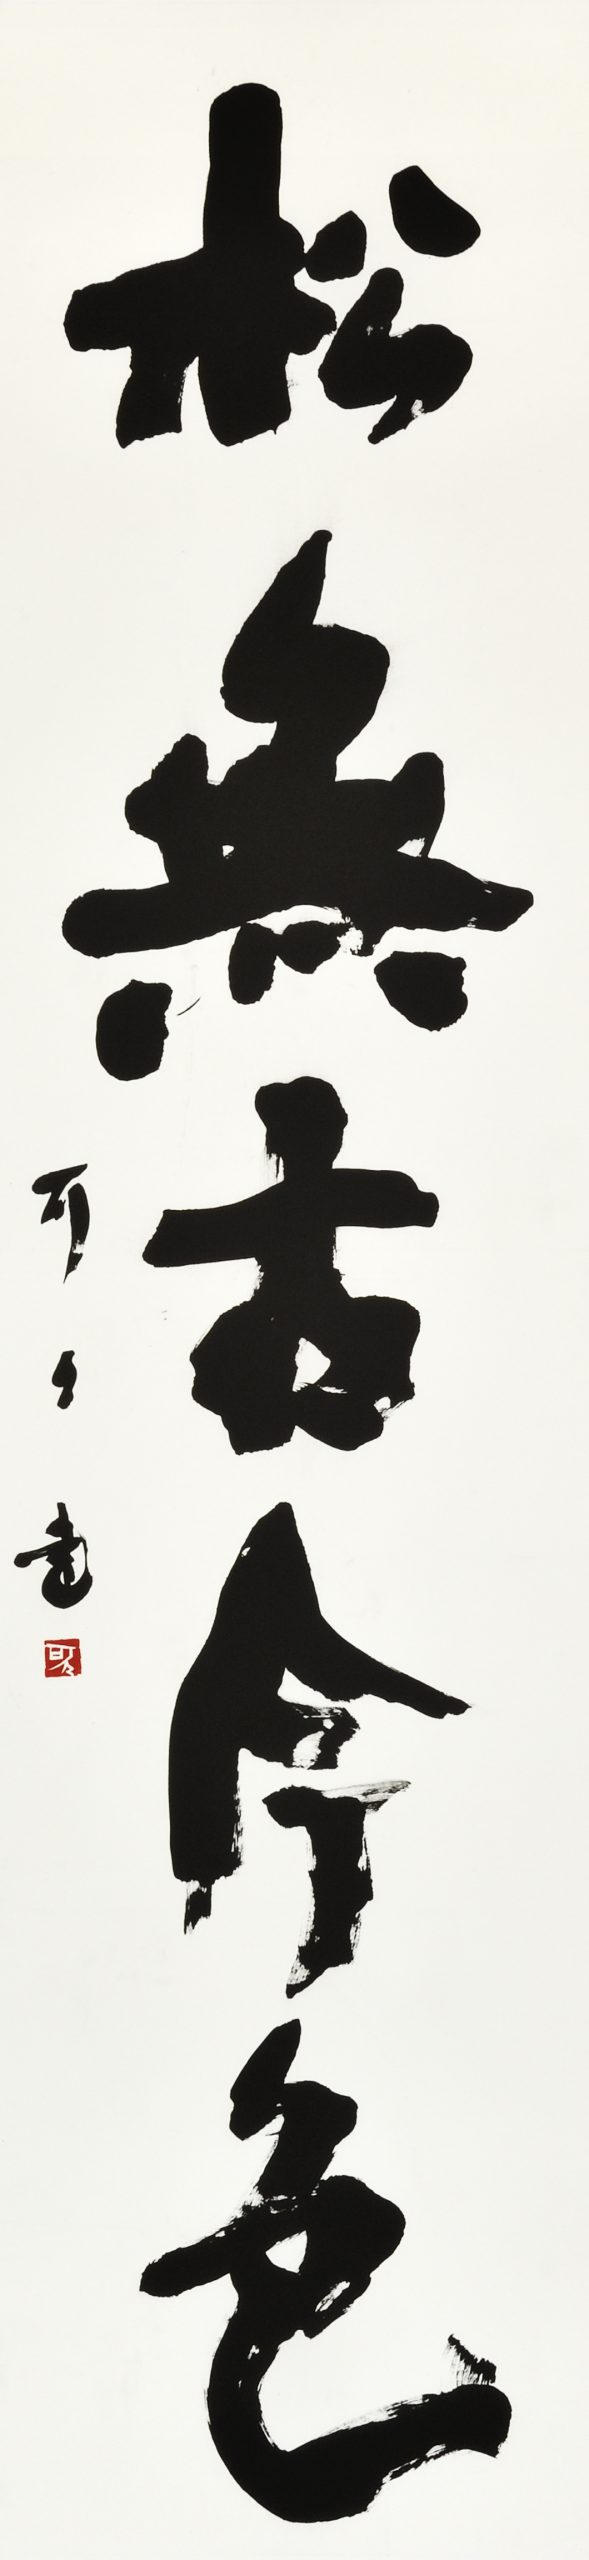 松無古今色
可々書